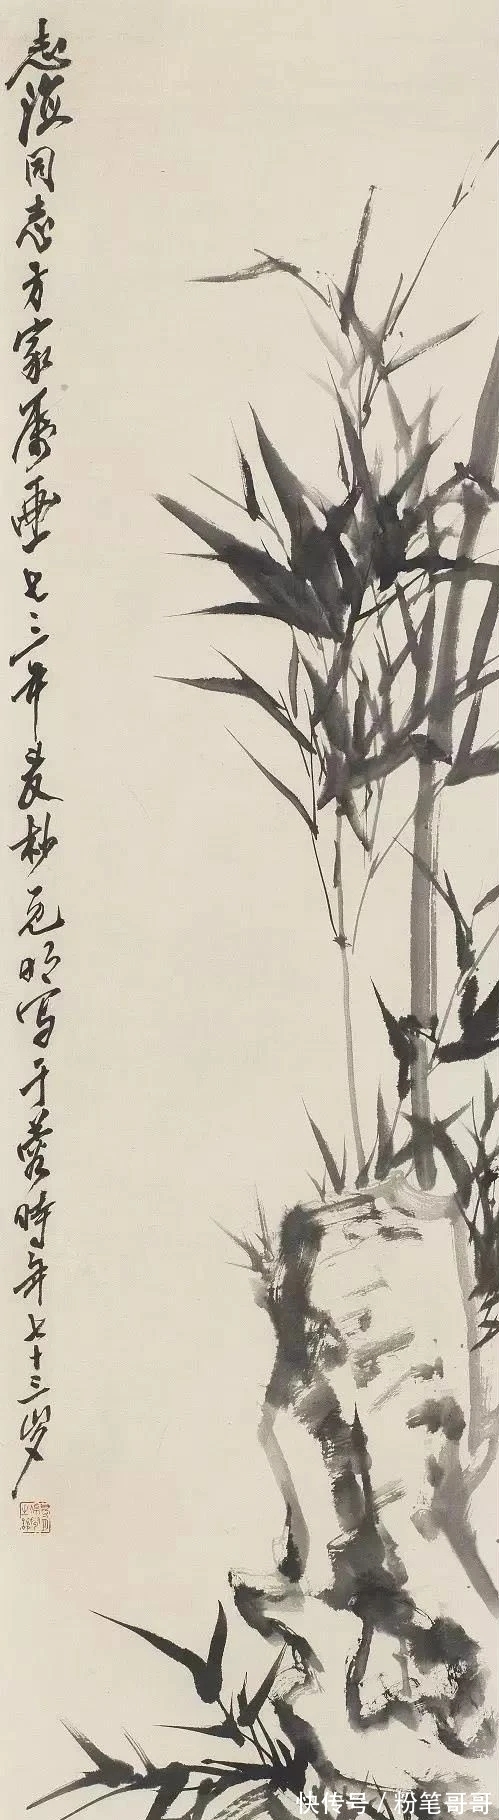 志谊同志方家属画七三年岁杪克明写于蓉时年七十三岁
快传号 / 粉笔哥哥